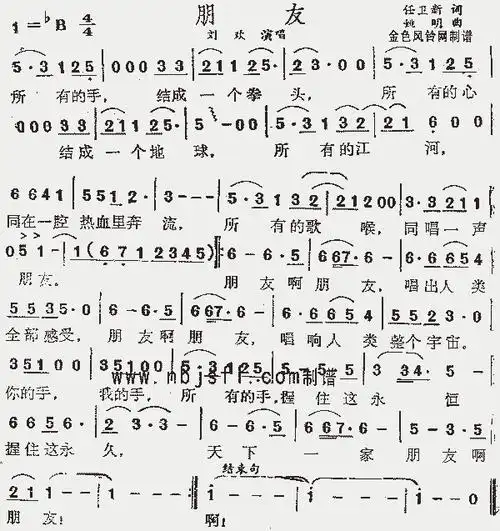 朋 友
1=♭B 4/4
刘 欢 演唱
任卫新 词
姚 明 曲
金色风铃网制谱
5·3 125 | 000 33 | 211 125· | 23·00 | 5·3 125
所 有的手， 结成一个拳 头， 所 有的心
000 33 | 211 25· | 5 -00 | 5·3 132 | 21 6 0 0
结成一个地 球， 所 有的江 河，
6 641 | 5512· | 3--- | 5·3 132 | 21200 | 3·3 211
同在一腔 热血里奔 流， 所 有的歌 喉， 同唱一声
> >
0 5 1 - | 1 ( 6 7 1 2 3 4 5 ) ‖: 6 - 6· 5 | 667·6 | 6·6 654
朋友。 朋友啊朋 友， 唱出人类
5535·0 | 6-6·5 | 667·6· | 6·6 654 | 5523·0
全部感受， 朋友啊朋 友， 唱响人类整个宇宙。
35100 | 35100 | 5·3 125 | 5-55 | 3 34·5
你的手， 我的手， 所 有的手,握住这永 恒
www.mbjsff.com制谱
6656· | 2 3-· | 3--- | 6-6·5 | 667·6 | 5-3·5
握住这永 久， 天下一 家 朋友啊
结束句
211 -- | 1--- :‖ i--- | i--- | i-00 ‖
朋友! 啊!